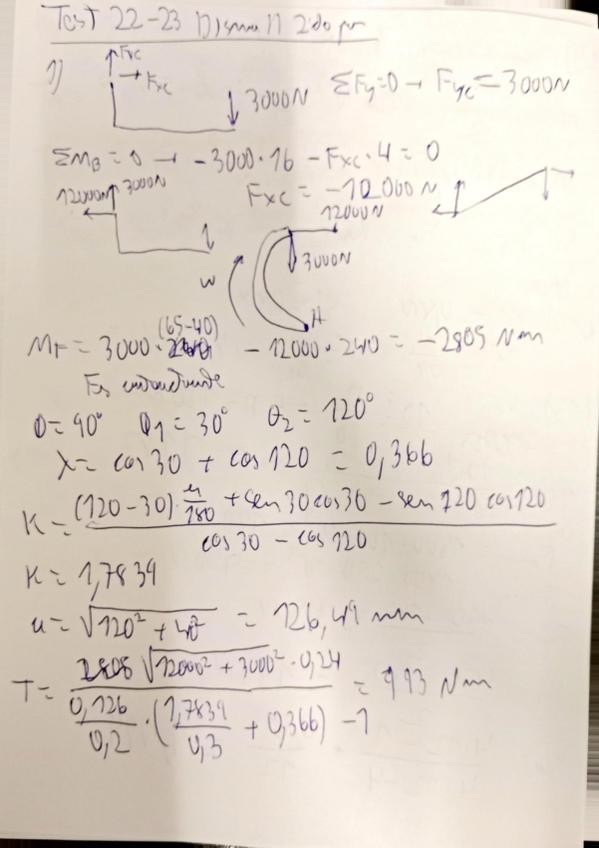 Test 22-23 2do
1)
Fyc
Fxc
3000N
ΣFy=0 → Fyc = 3000N
ΣMB = 0 → -3000·16 - Fxc·4 = 0
12000N 3000N
Fxc = -12000N
12000N
3000N
W
A
(65-40)
MF = 3000· - 12000·240 = -2805 Nm
Es
θ=90° θ1=30° θ2=120°
λ= cos30 + cos120 = 0,366
K= (120-30)·π/180 + sen30cos30 - sen120 cos120
cos30 - cos120
K= 1,7839
u= √120² + 40² = 126,49 mm
T= 2808 √12000² + 3000² · 0,24 = 993 Nm
0,126/0,2 · (1,7839/0,3 + 0,366) - 1